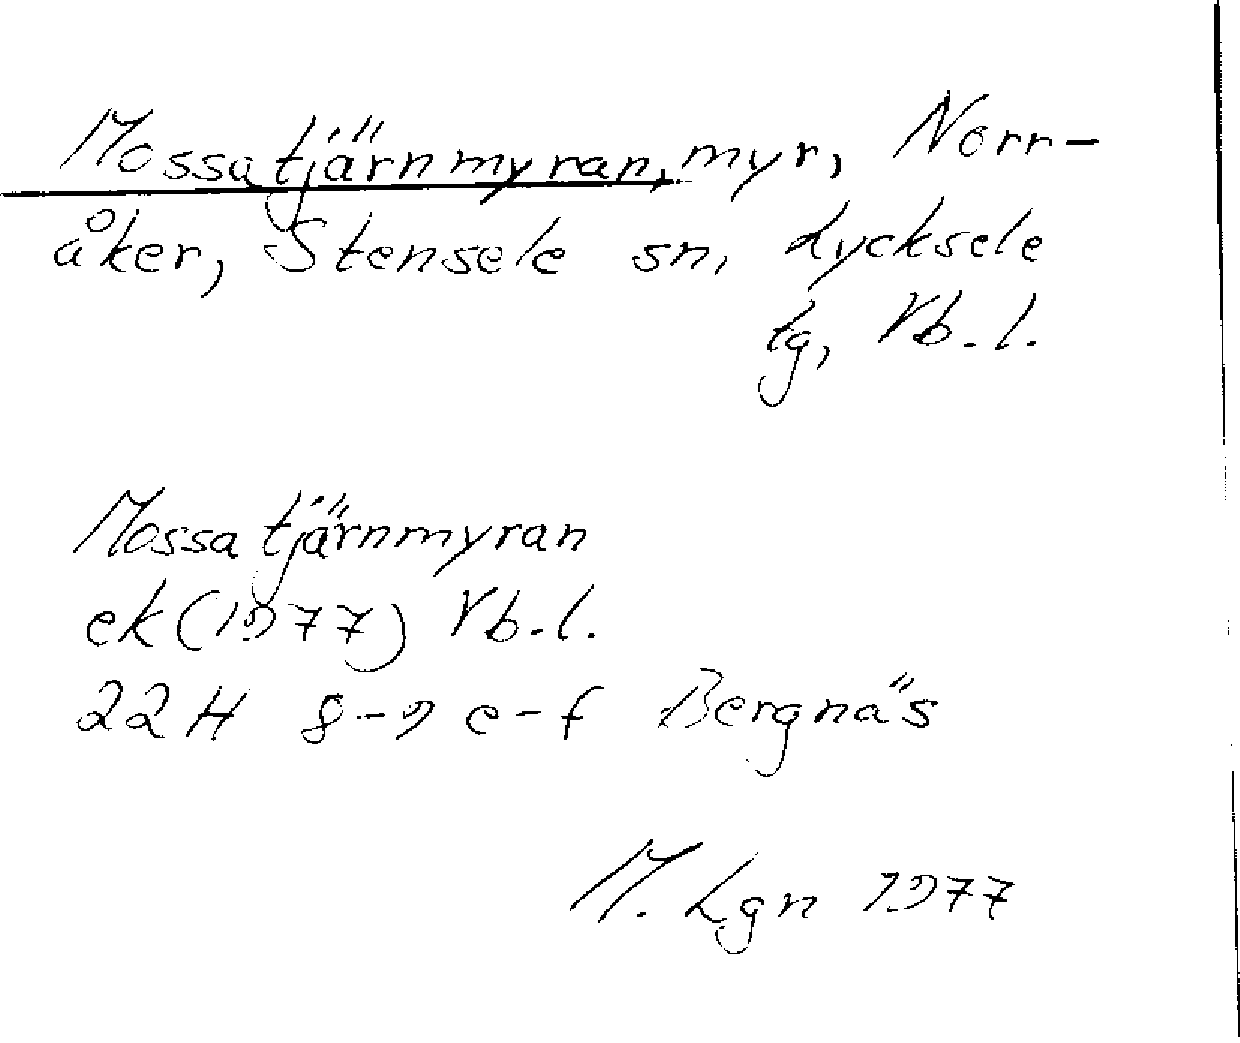 Mossatjärnmyran, myr, Norr-
åker, Stensele sn, Lycksele
lg, Vb.l.
Mossatjärnmyran
ek (1977) Vb.l.
22H 8-9 e-f Bergnäs
M. Lgn 1977